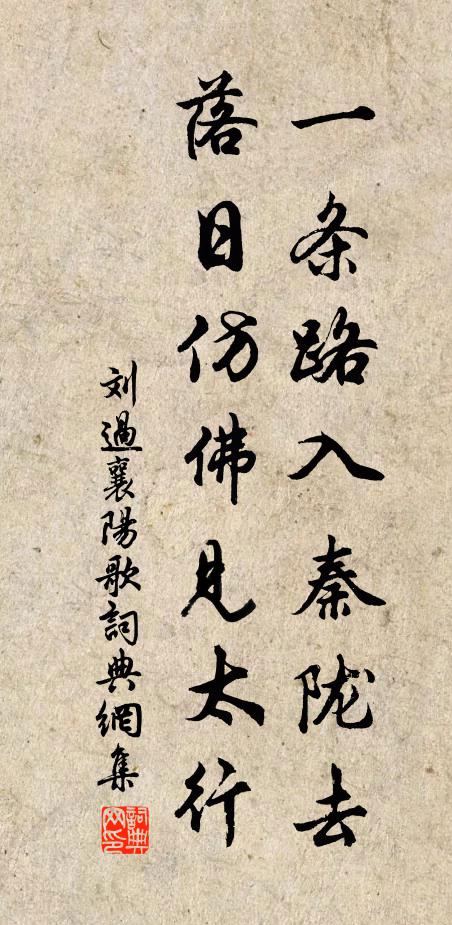 一条路入秦陇去
落日仿佛見太行
刘過襄陽歌詞典網集
詞典网印